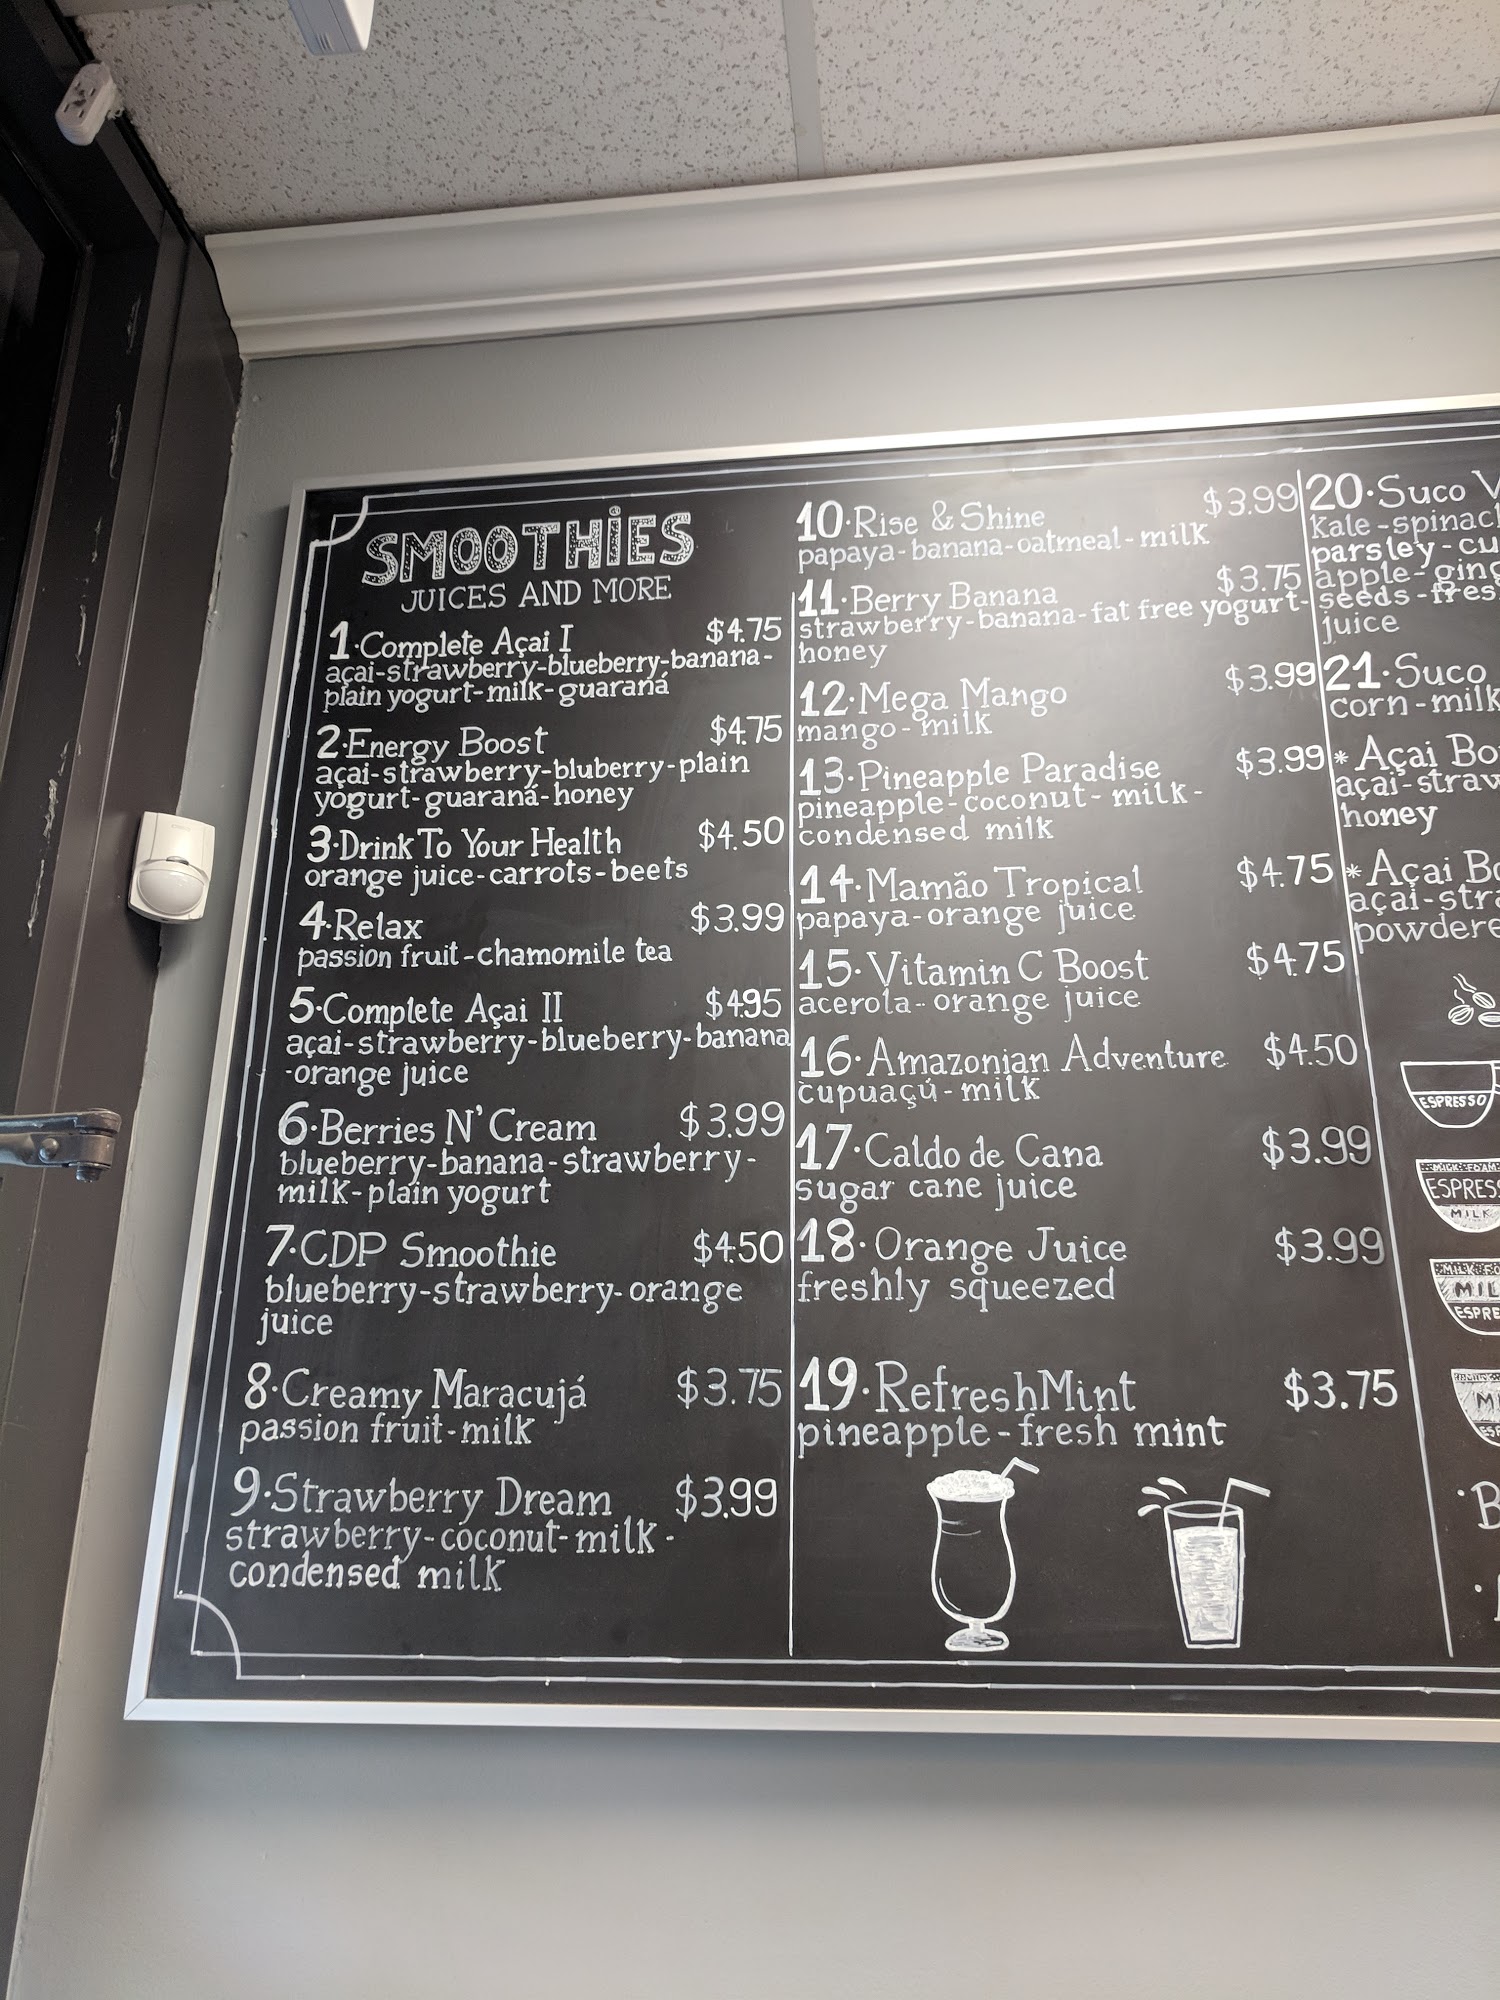 SMOOTHiES
JUICES AND MORE
1·Complete Açai I $4.75
açai-strawberry-blueberry-banana-
plain yogurt-milk-guaraná
2·Energy Boost $4.75
açai-strawberry-bluberry-plain
yogurt-guaraná-honey
3·Drink To Your Health $4.50
orange juice-carrots-beets
4·Relax $3.99
passion fruit-chamomile tea
5·Complete Açai II $4.95
açai-strawberry-blueberry-banana
-orange juice
6·Berries N' Cream $3.99
blueberry-banana-strawberry-
milk-plain yogurt
7·CDP Smoothie $4.50
blueberry-strawberry-orange
juice
8·Creamy Maracujá $3.75
passion fruit-milk
9·Strawberry Dream $3.99
strawberry-coconut-milk-
condensed milk
10·Rise & Shine $3.99
papaya-banana-oatmeal-milk
11·Berry Banana $3.75
strawberry-banana-fat free yogurt-
honey
12·Mega Mango $3.99
mango-milk
13·Pineapple Paradise $3.99
pineapple-coconut-milk-
condensed milk
14·Mamão Tropical $4.75
papaya-orange juice
15·Vitamin C Boost $4.75
acerola-orange juice
16·Amazonian Adventure $4.50
cupuaçú-milk
17·Caldo de Cana $3.99
sugar cane juice
18·Orange Juice $3.99
freshly squeezed
19·RefreshMint $3.75
pineapple-fresh mint
20·Suco V
Kale-spinac
parsley-cu
apple-ging
seeds-fres
juice
21·Suco
corn-milk
*Açai Bo
açai-straw
honey
*Açai Bo
açai-stra
powdere
ESPRESSO
MILK FOAM
ESPRESS
MILK
MILK FO
MIL
ESPRE